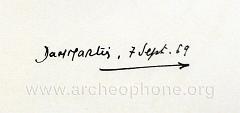 Dammartin, 7 Sept. 69
www.archeophone.org